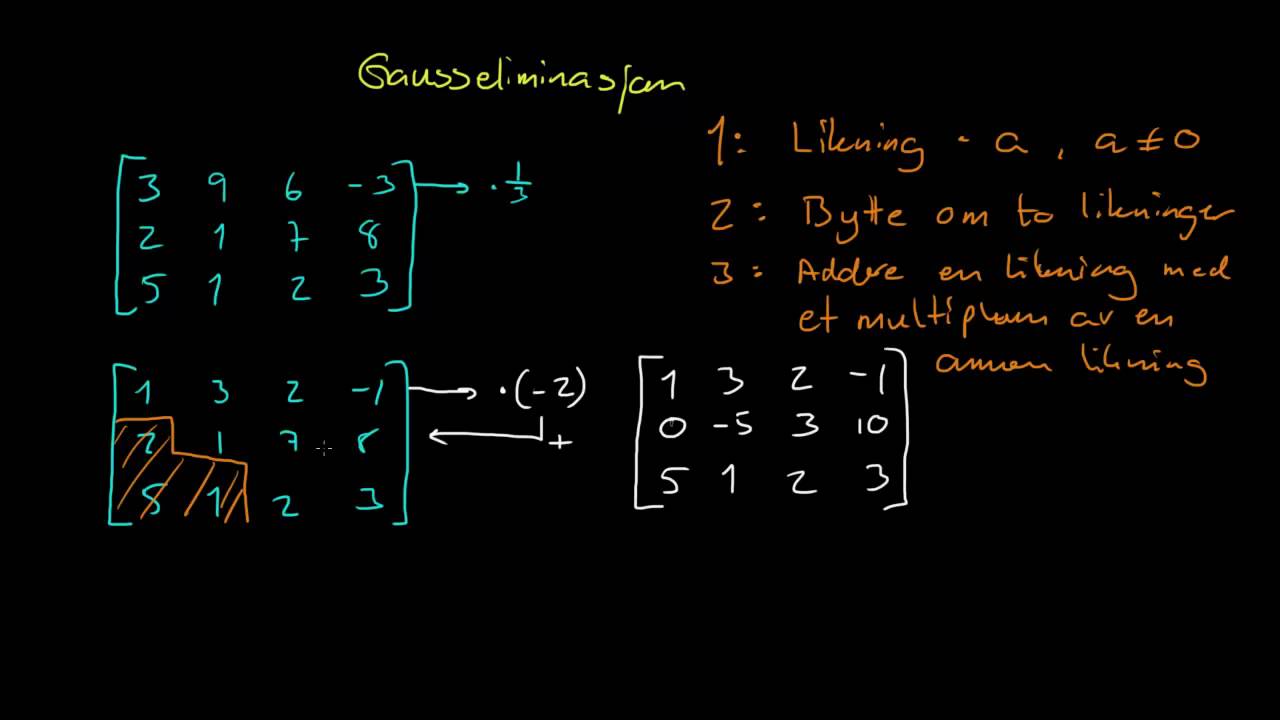 Gausseliminasjon
1: Likning · a , a ≠ 0
2: Bytte om to likninger
3: Addere en likning med
et multiplum av en
annen likning
3 9 6 -3 → · 1/3
2 1 7 8
5 1 2 3
1 3 2 -1 → · (-2)
2 1 7 8 ← +
5 1 2 3
1 3 2 -1
0 -5 3 10
5 1 2 3